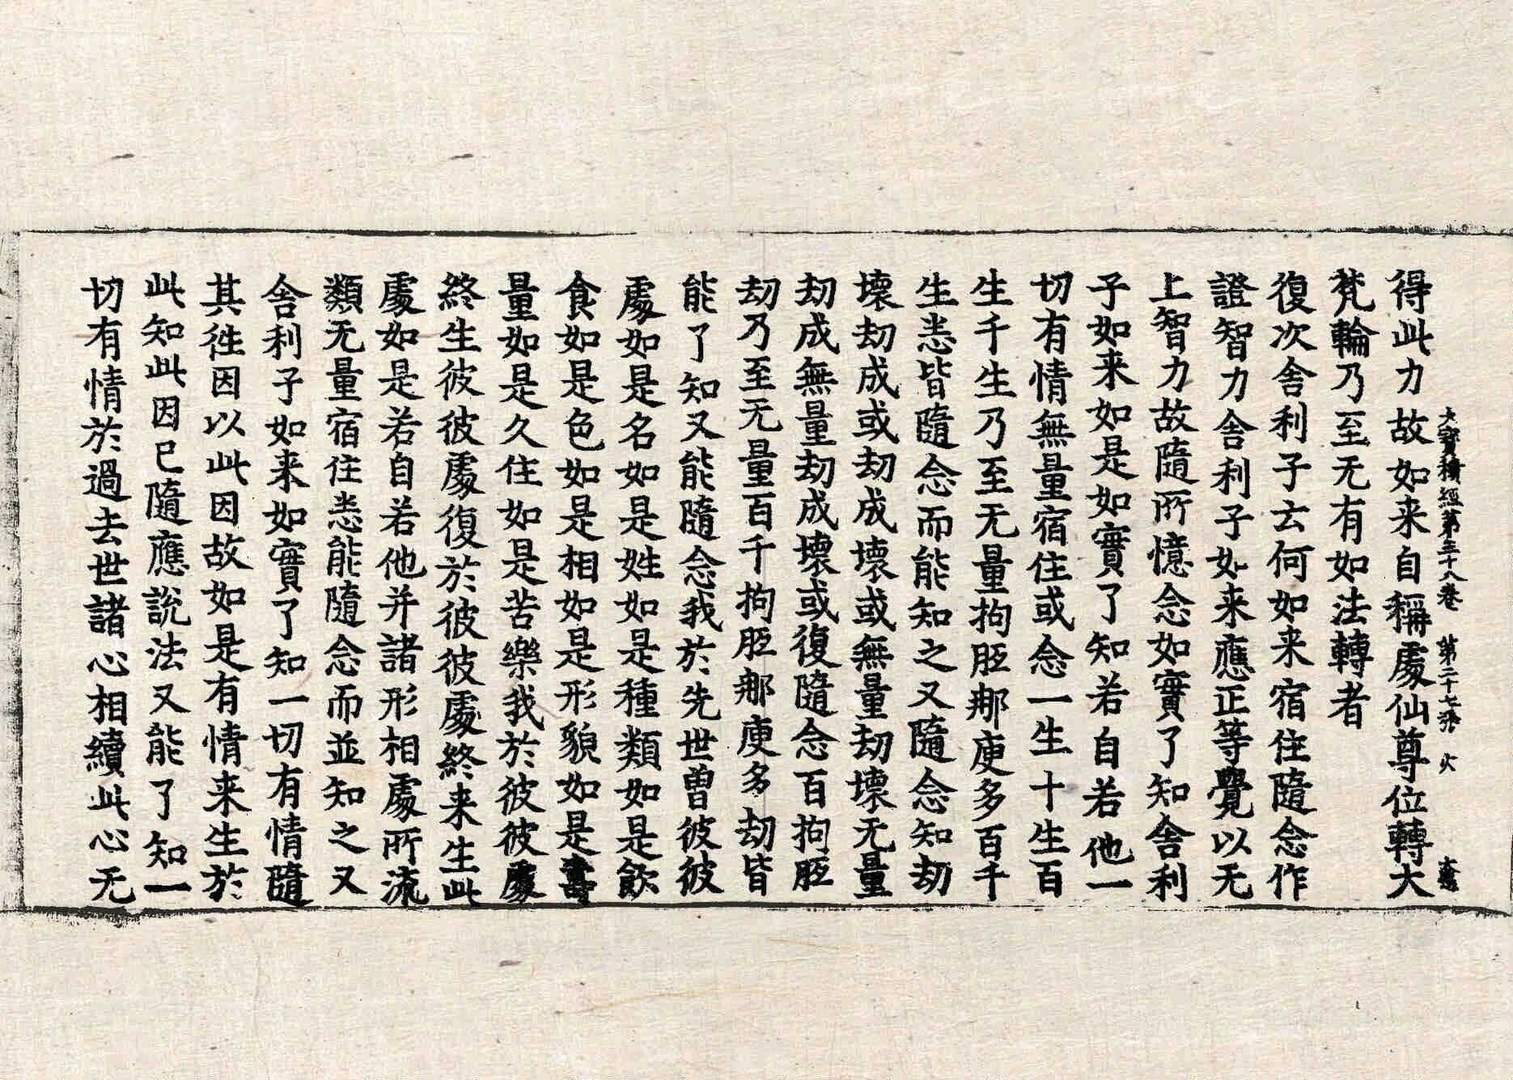 大寶積經第三十八卷 第二十七张 火
得此力故如来自稱處仙尊位轉大
梵輪乃至无有如法轉者
復次舍利子云何如来宿住隨念作
證智力舍利子如来應正等覺以无
上智力故隨所憶念如實了知舍利
子如来如是如實了知若自若他一
切有情無量宿住或念一生十生百
生千生乃至无量拘胝那庾多百千
生悉皆隨念而能知之又隨念知劫
壞劫成或劫成壞或無量劫壞无量
劫成無量劫成壞或復隨念百拘胝
劫乃至无量百千拘胝那庾多劫皆
能了知又能隨念我於先世曽彼彼
處如是名如是姓如是種類如是飲
食如是色如是相如是形貌如是壽
量如是久住如是苦樂我於彼彼處
終生彼彼處復於彼彼處終来生此
處如是若自若他并諸形相處所流
類无量宿住悉能隨念而並知之又
舍利子如来如實了知一切有情隨
其徃因以此因故如是有情来生於
此知此因已隨應說法又能了知一
切有情於過去世諸心相續此心无